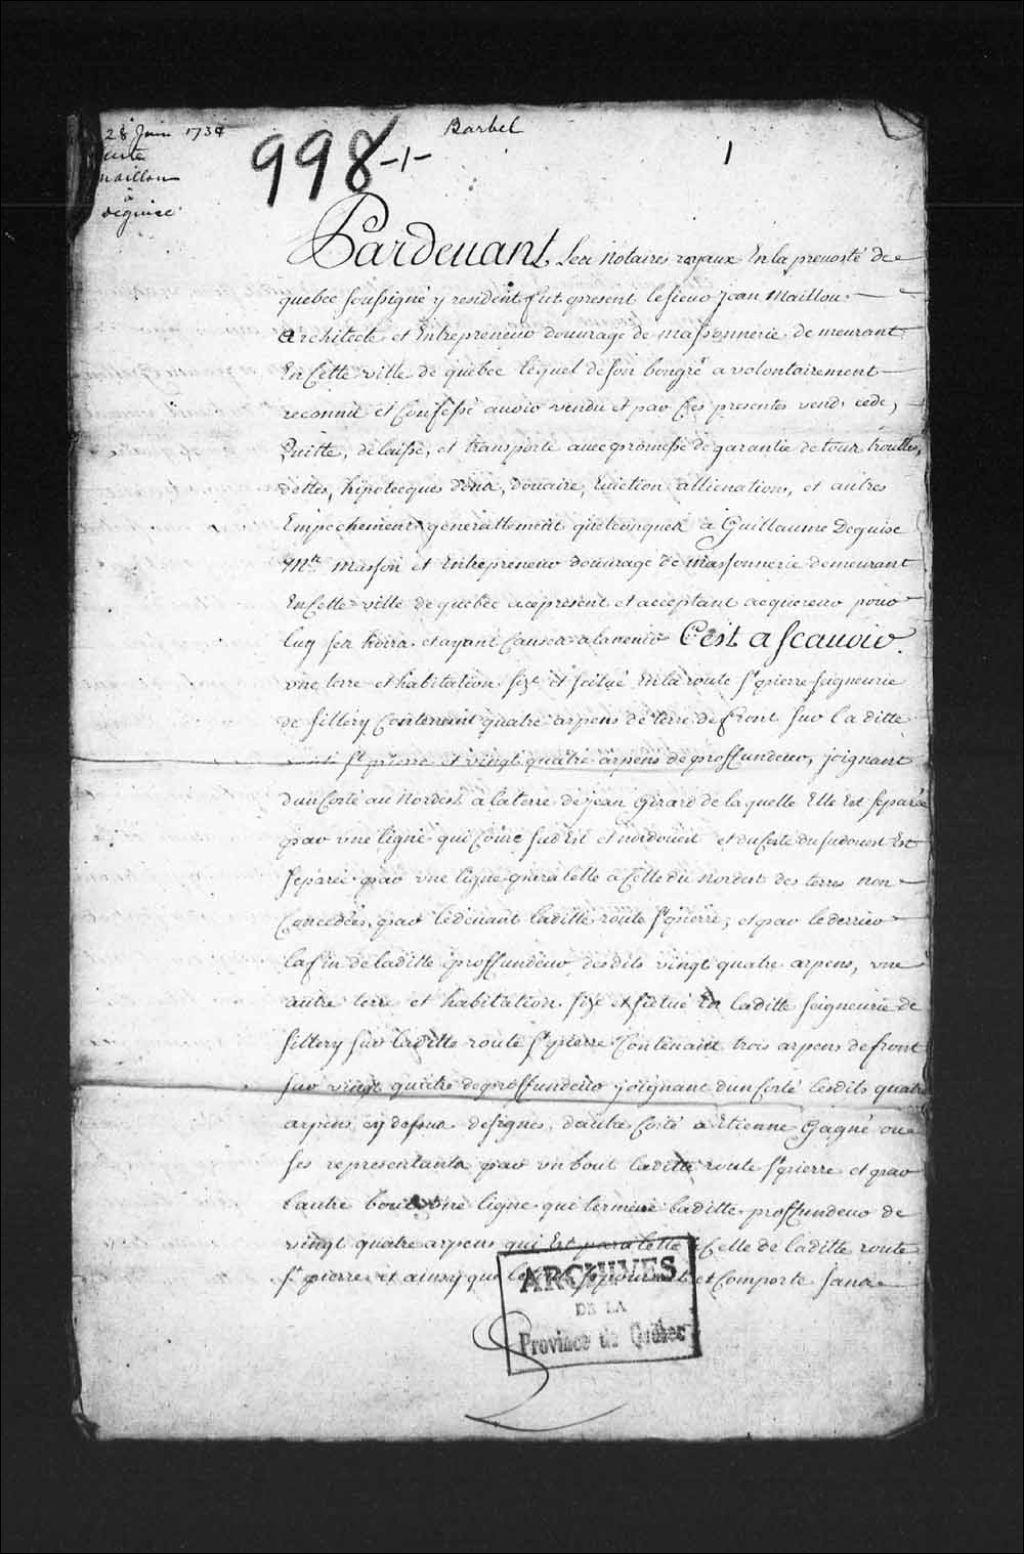 28 Juin 1734
Barbel
998 -1-
1
vente
maillou
a
deguise
Pardevant Les notaires royaux En la prevosté de
quebec soussigné y resident fut present le sieur Jean Maillou
Architecte et Entrepreneur d'ouvrage de massonnerie demeurant
En Cette ville de quebec lequel de son bongré a volontairement
reconnu et Confessé avoir vendu et par Ces presentes vend, cede,
Quitte, delaisse, et transporte avec promesse de garantie de tous troubles,
dettes, hipotecques dons, douaire, Eviction allienations, et autres
Empechements generallement quelconques à Guillaume Deguise
Mtre Masson et Entrepreneur douvrage de massonnerie demeurant
En Cette ville de quebec a ce present et acceptant acquereur pour
luy ses hoirs et ayant Causes a lavenir C'est a scavoir
une terre et habitation size et scitué En la route St pierre seigneurie
de sillery Contenant quatre arpens de terre de front sur la ditte
route St pierre et vingt quatre arpens de proffundeur, joignant
dun Costé au Nordest a la terre de jean Girard de laquelle Elle Est separée
par une ligne qui Coure sud Est et nordouest et du Costé du sudouest Est
separée par une ligne paralelle a Celle du Nordest des terres non
Concedées, par le devant laditte route St pierre, et par le derriere
la fin de laditte proffundeur desdits vingt quatre arpens, une
autre terre et habitation size et situé En laditte seigneurie de
sillery sur laditte route St pierre Contenant trois arpens de front
sur vingt quatre de proffundeur joignant dun Costé lesdits quatre
arpens cy dessus designés, dautre Costé a Etienne Gagné ou
ses representants par un bout laditte route St pierre et par
lautre bout une ligne qui termine laditte proffundeur de
vingt quatre arpens qui Est paralelle a Celle de laditte route
St pierre et ainsy que le et Comporte sans
ARCHIVES
DE LA
Province de Québec